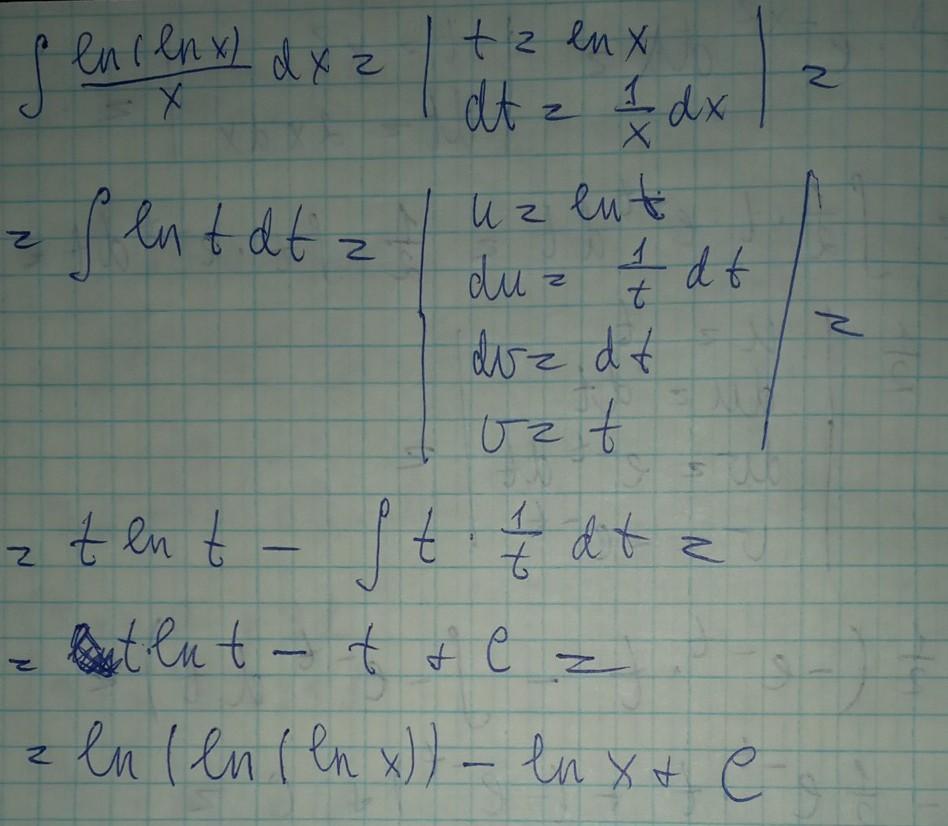 ∫ ln(ln x)/x dx = | t = ln x
dt = 1/x dx | =
= ∫ ln t dt = | u = ln t
du = 1/t dt
dv = dt
v = t | =
= t ln t - ∫ t · 1/t dt =
= t ln t - t + C =
= ln(ln(ln x)) - ln x + C